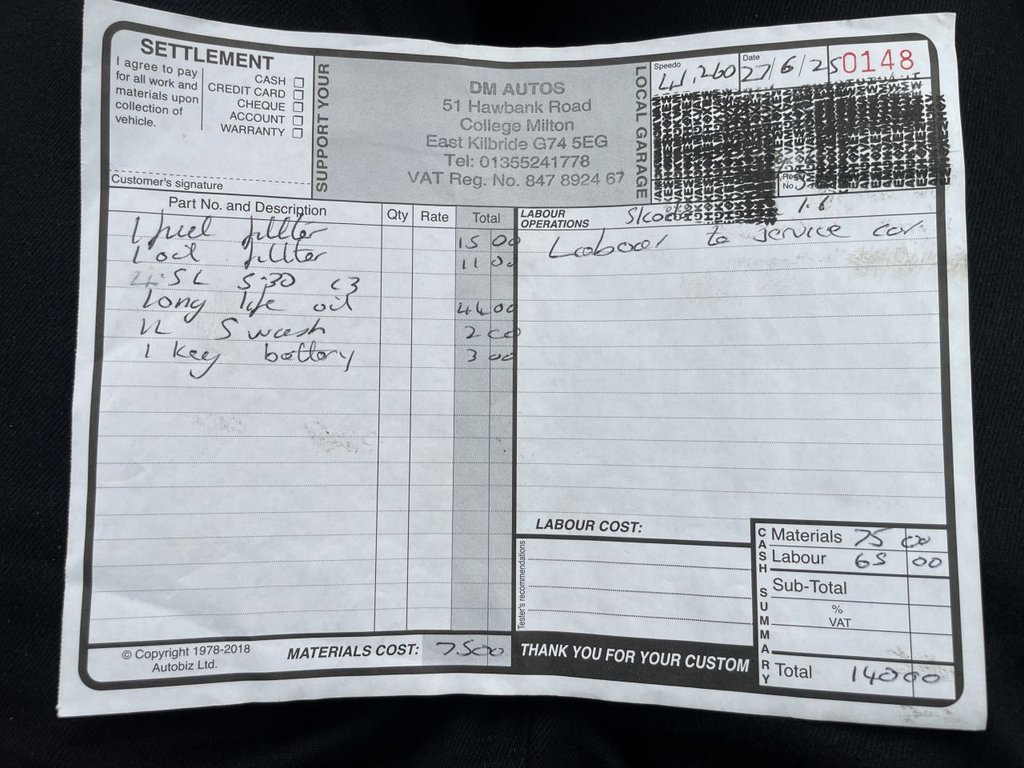 SETTLEMENT
I agree to pay
for all work and
materials upon
collection of
vehicle.
CASH
CREDIT CARD
CHEQUE
ACCOUNT
WARRANTY
Customer's signature
SUPPORT YOUR
DM AUTOS
51 Hawbank Road
College Milton
East Kilbride G74 5EG
Tel: 01355241778
VAT Reg. No. 847 8924 67
LOCAL GARAGE
Speedo 41,260
Date 27/6/25
0148
Reg No.
Part No. and Description Qty Rate Total
1 fuel fillter 15 00
1 oil fillter 11 00
4.5L 5-30 C3
Long life oil 44 00
1L S wash 2 00
1 Key battery 3 00
LABOUR OPERATIONS Skoda 1.6
Labour to service car
LABOUR COST:
Tester's recommendations
CASH SUMMARY
Materials 75 00
Labour 65 00
Sub-Total
% VAT
Total 140 00
© Copyright 1978-2018
Autobiz Ltd.
MATERIALS COST: 75 00
THANK YOU FOR YOUR CUSTOM